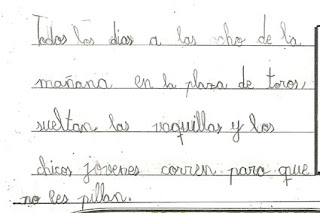 Todos los dias a las ocho de la
mañana en la plaza de toros,
sueltan las vaquillas y los
chicos jovenes corren para que
no les pillan.